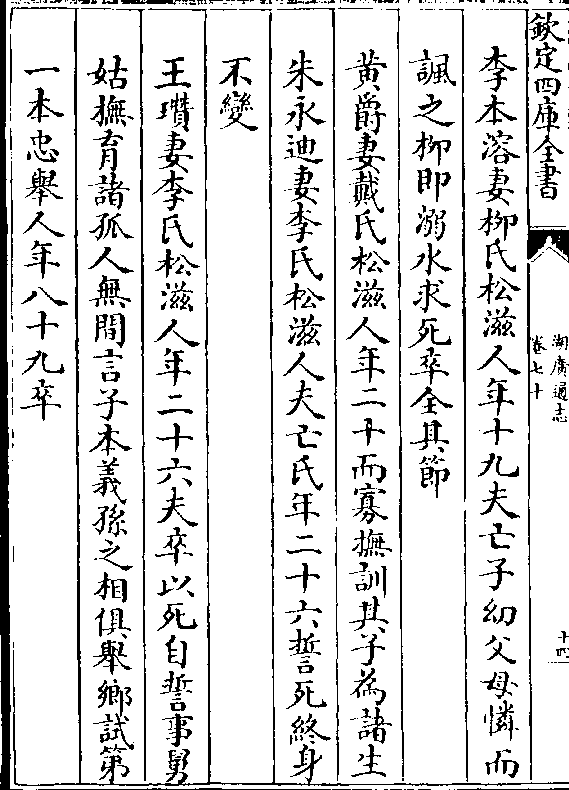 欽定四庫全書
湖廣通志
卷七十
十四
李本溶妻柳氏松滋人年十九夫亡子幼父母憐而
諷之柳即溺水求死卒全其節
黄爵妻戴氏松滋人年二十而寡撫訓其子為諸生
朱永迪妻李氏松滋人夫亡氏年二十六誓死終身
不變
王瓚妻李氏松滋人年二十六夫卒以死自誓事舅
姑撫育諸孤人無間言子本義孫之相俱舉鄉試第
一本忠舉人年八十九卒